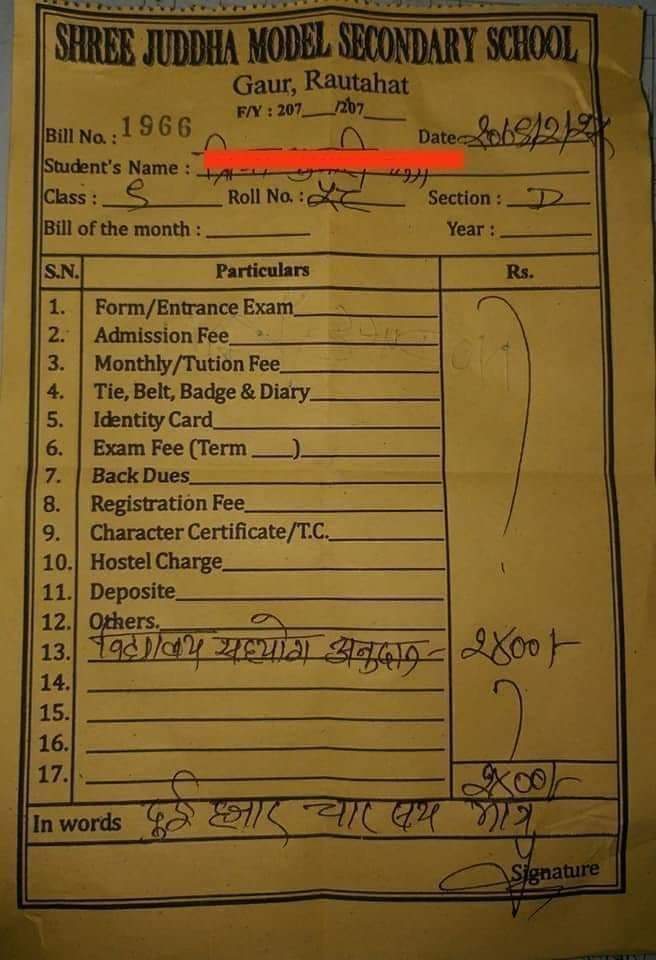 SHREE JUDDHA MODEL SECONDARY SCHOOL
Gaur, Rautahat
F/Y : 207___/207___
Bill No. : 1966 Date
Student's Name :
Class : Roll No. : ५८ Section : D
Bill of the month : Year :
S.N. Particulars Rs.
1. Form/Entrance Exam
2. Admission Fee
3. Monthly/Tution Fee
4. Tie, Belt, Badge & Diary
5. Identity Card
6. Exam Fee (Term ____)
7. Back Dues
8. Registration Fee
9. Character Certificate/T.C.
10. Hostel Charge
11. Deposite
12. Others.
13. विद्यालय सहयोग अनुदान - २४००/-
14.
15.
16.
17. २४००/-
In words दुई हजार चार सय मात्र
Signature